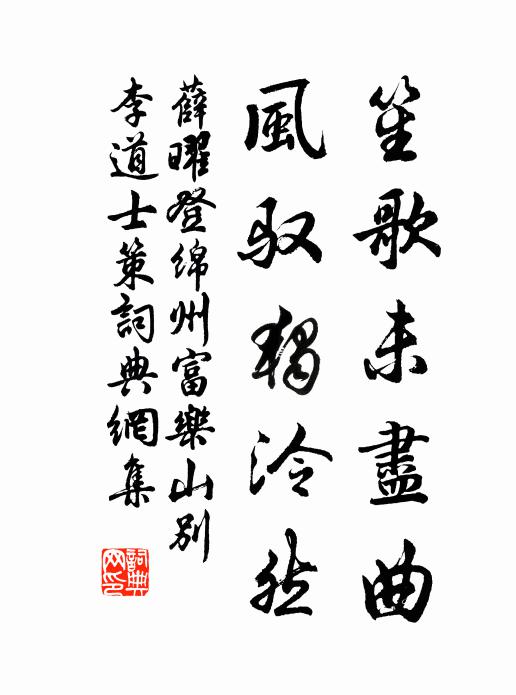 笙歌未盡曲
風馭獨泠然
薛曜登綿州富樂山別
李道士策詞典網集
詞典
网印